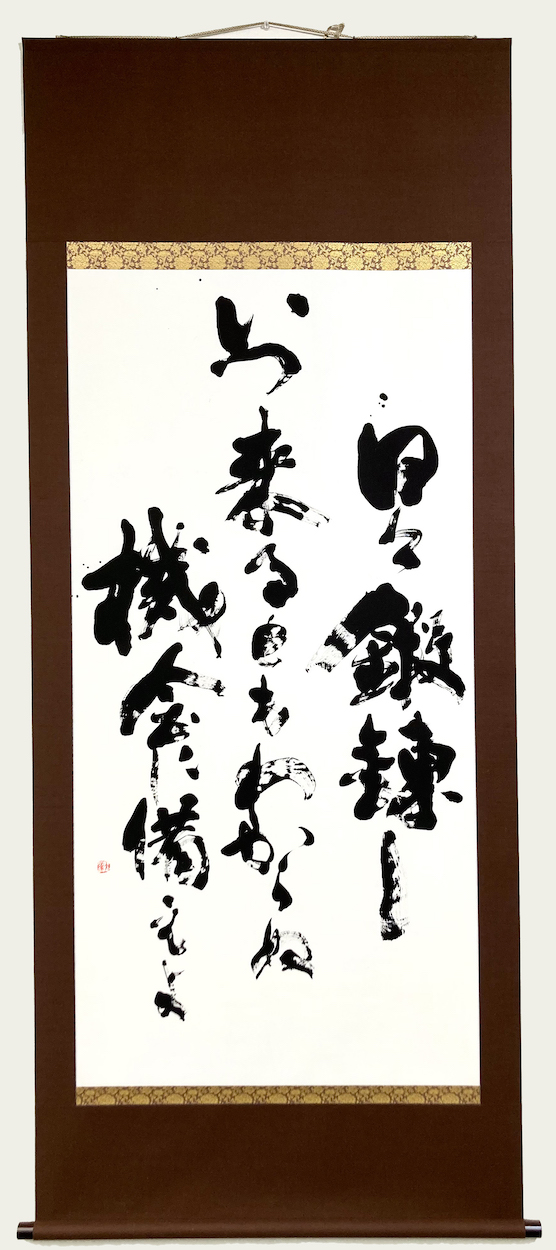 日々鍛錬し
いつ来る日もわからぬ
機会に備えよ